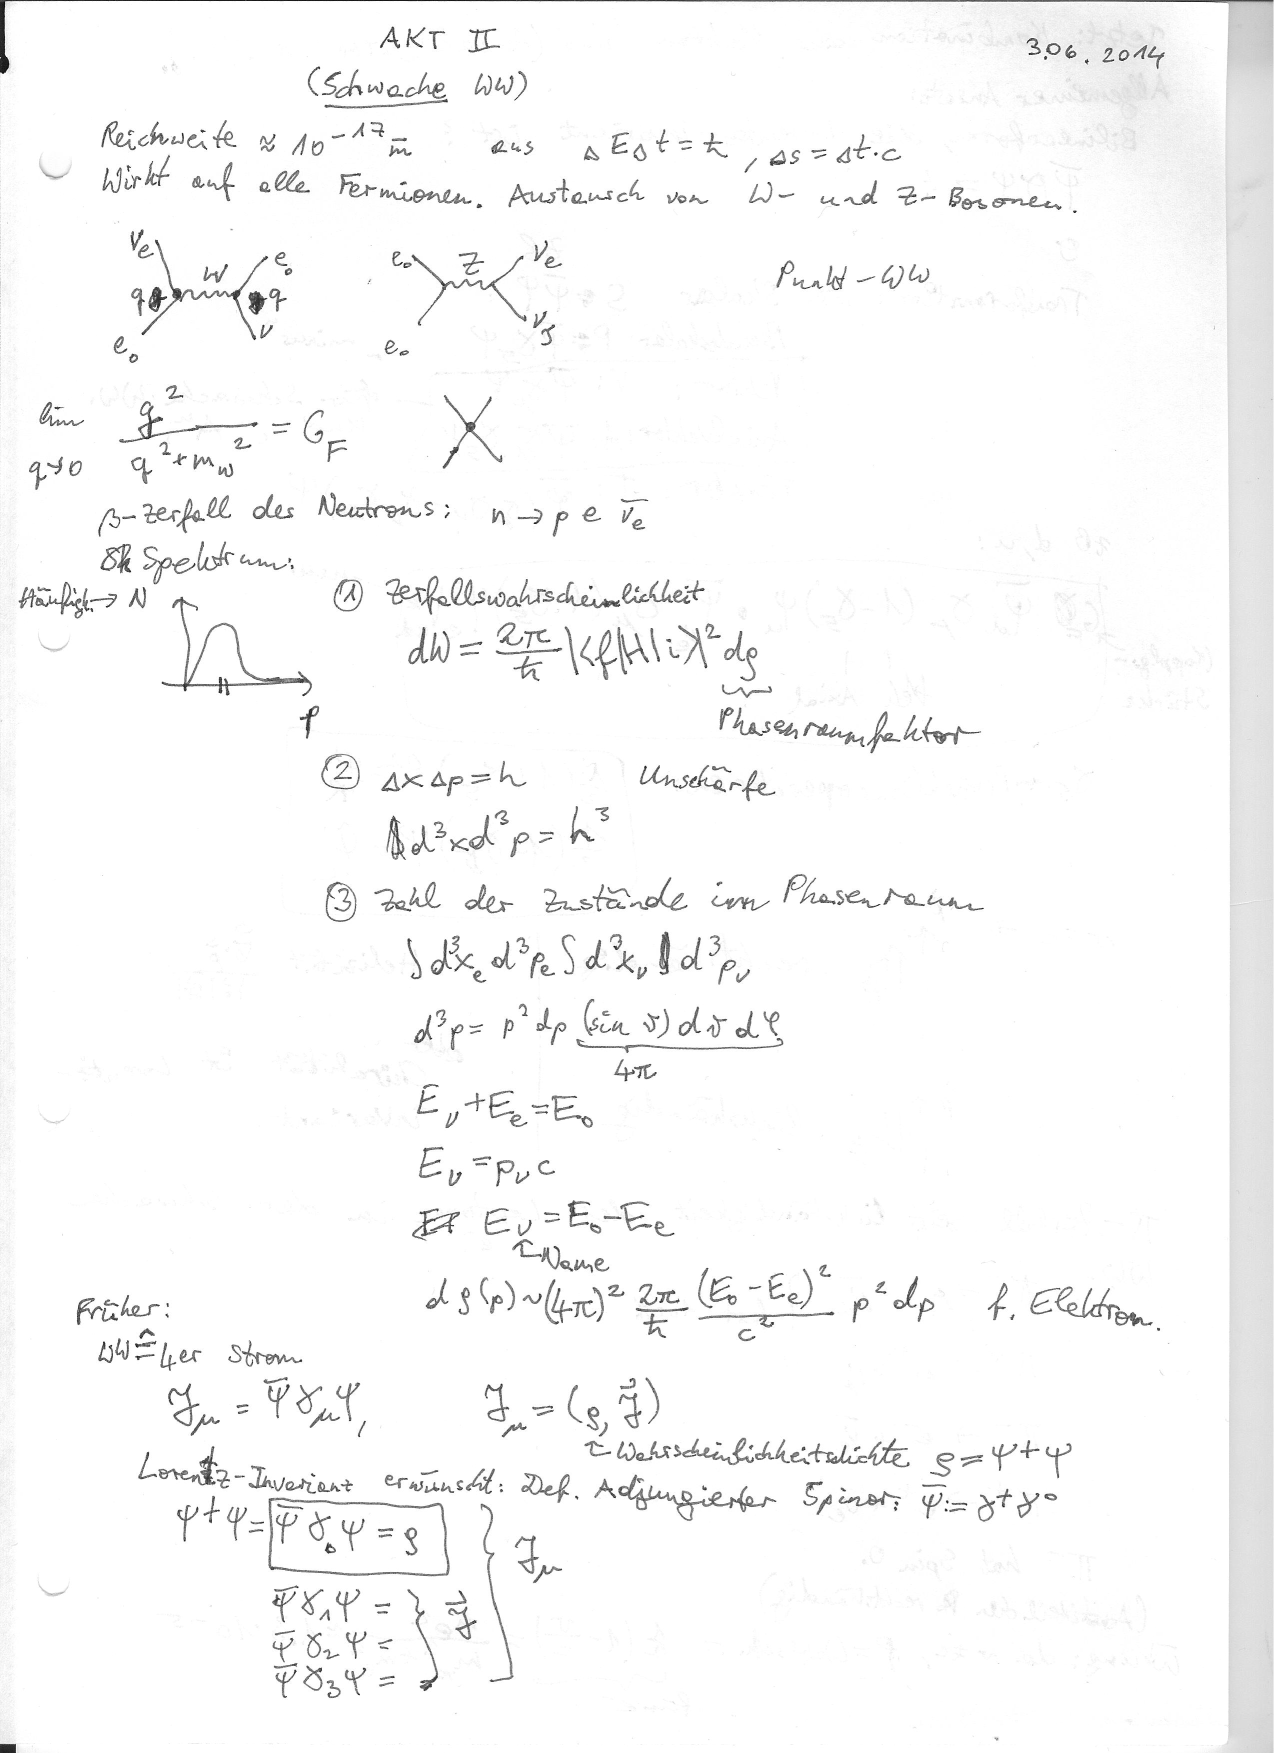 AKT II
3.06.2014
(Schwache WW)
Reichweite ≈ 10^-17 m aus ΔEΔt = ℏ, Δs = Δt·c
Wirkt auf alle Fermionen. Austausch von W- und Z-Bosonen.
νe W e₀ e₀ Z νe Punkt-WW
q q
e₀ ν e₀ ν
lim q→0 g²/(q²+m_W²) = G_F
β-Zerfall des Neutrons: n → p e ν̄e
Spektrum:
Häufigk. → N
p
① Zerfallswahrscheinlichkeit
dW = 2π/ℏ |<f|H|i>|² dρ
Phasenraumfaktor
② Δx Δp = h Unschärfe
d³x d³p = h³
③ Zahl der Zustände im Phasenraum
∫ d³x_e d³p_e ∫ d³x_ν d³p_ν
d³p = p² dp (sin ϑ) dϑ dφ
4π
E_ν + E_e = E₀
E_ν = p_ν c
E_ν = E₀ - E_e
↑ Name
dρ(p) ~ (4π)² 2π/ℏ (E₀ - E_e)²/c² p² dp f. Elektron.
Früher:
WW ≙ 4er Strom
J_μ = ψ̄ γ_μ ψ, J_μ = (ρ, J⃗)
↑ Wahrscheinlichkeitsdichte ρ = ψ+ψ
Lorentz-Invariant erwünscht: Def. Adjungierter Spinor: ψ̄ := γ+γ⁰
ψ+ψ = ψ̄ γ₀ ψ = ρ
J_μ
ψ̄ γ₁ ψ =
ψ̄ γ₂ ψ = J⃗
ψ̄ γ₃ ψ =